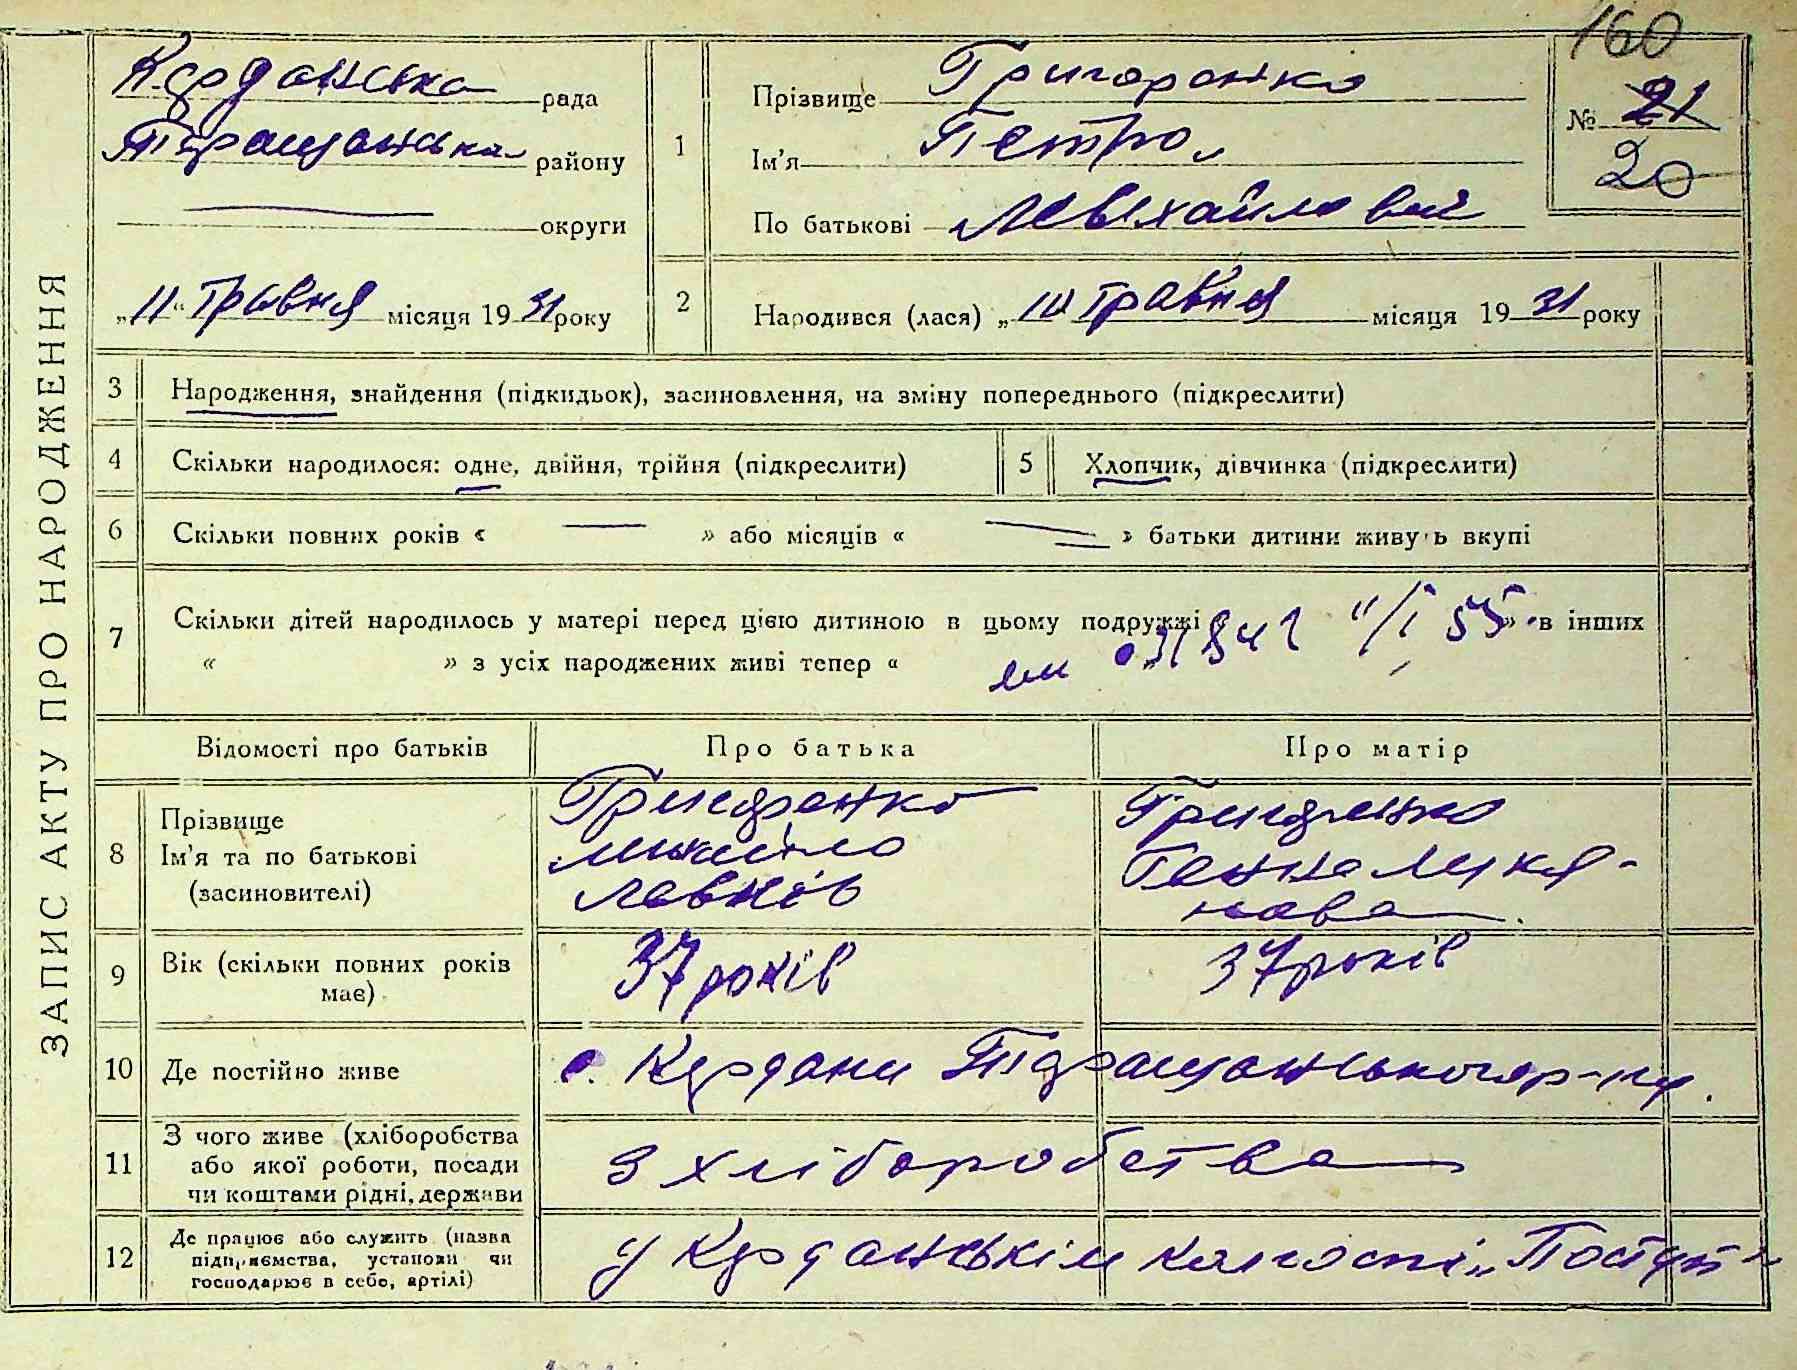 160
ЗАПИС АКТУ ПРО НАРОДЖЕННЯ
Кірданська рада
Таращанська району
округи
„11“ Травня місяця 1931 року
1
Прізвище Григоренко
Ім’я Петро
По батькові Михайлович
№ 21
20
2
Народився (лася) „10“ травня місяця 1931 року
3 Народження, знайдення (підкидьок), засиновлення, на зміну попереднього (підкреслити)
4 Скільки народилося: одне, двійня, трійня (підкреслити)
5 Хлопчик, дівчинка (підкреслити)
6 Скільки повних років « — » або місяців « — » батьки дитини живуть вкупі
7 Скільки дітей народилось у матері перед цією дитиною в цьому подружжі « » в інших
« » з усіх народжених живі тепер «
Відомості про батьків Про батька Про матір
8 Прізвище
Ім’я та по батькові
(засиновителі)
Григоренко
Михайло
Левків
Григоренко
Ганна Лукя-
нова
9 Вік (скільки повних років має)
37 років
37 років
10 Де постійно живе
с. Кірдани Таращанського р-ну.
11 З чого живе (хліборобства
або якої роботи, посади
чи коштами рідні, держави
з хліборобства
12 Де працює або служить (назва
підприємства, установи чи
господарює в себе, артілі)
у Кірданськім колгоспі „Поступ“